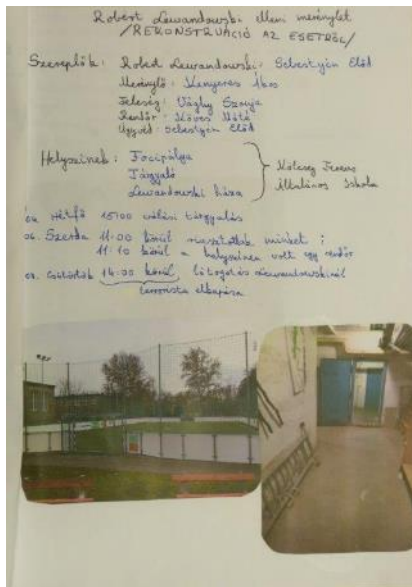 Robert Lewandowski elleni merénylet
/REKONSTRUÁCIÓ AZ ESETRŐL/
Szereplők: Robert Lewandowski: Sebestyén Előd
Merénylő: Kenyeres Ákos
Feleség: Vághy Szonja
Rendőr: Köves Máté
Ügyvéd: Sebestyén Előd
Helyszínek: Focipálya
Tárgyaló
Lewandowski háza
Kölcsey Ferenc
Általános Iskola
04. Hétfő 15:00 válási tárgyalás
06. Szerda 11:00 körül riasztottak minket;
11:10 körül a helyszínen volt egy rendőr
07. Csütörtök 14:00 körül, látogatás Lewandowskinál
terrorista elkapása